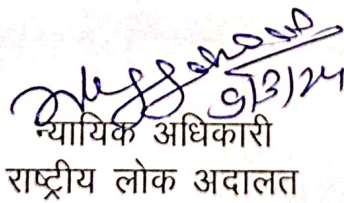 9/3/24
न्यायिक अधिकारी
राष्ट्रीय लोक अदालत